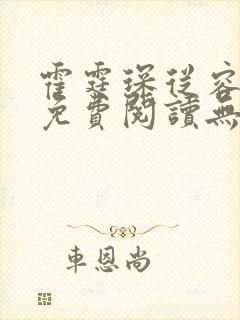 霍霆琛从容
免費閱讀無
車恩尚